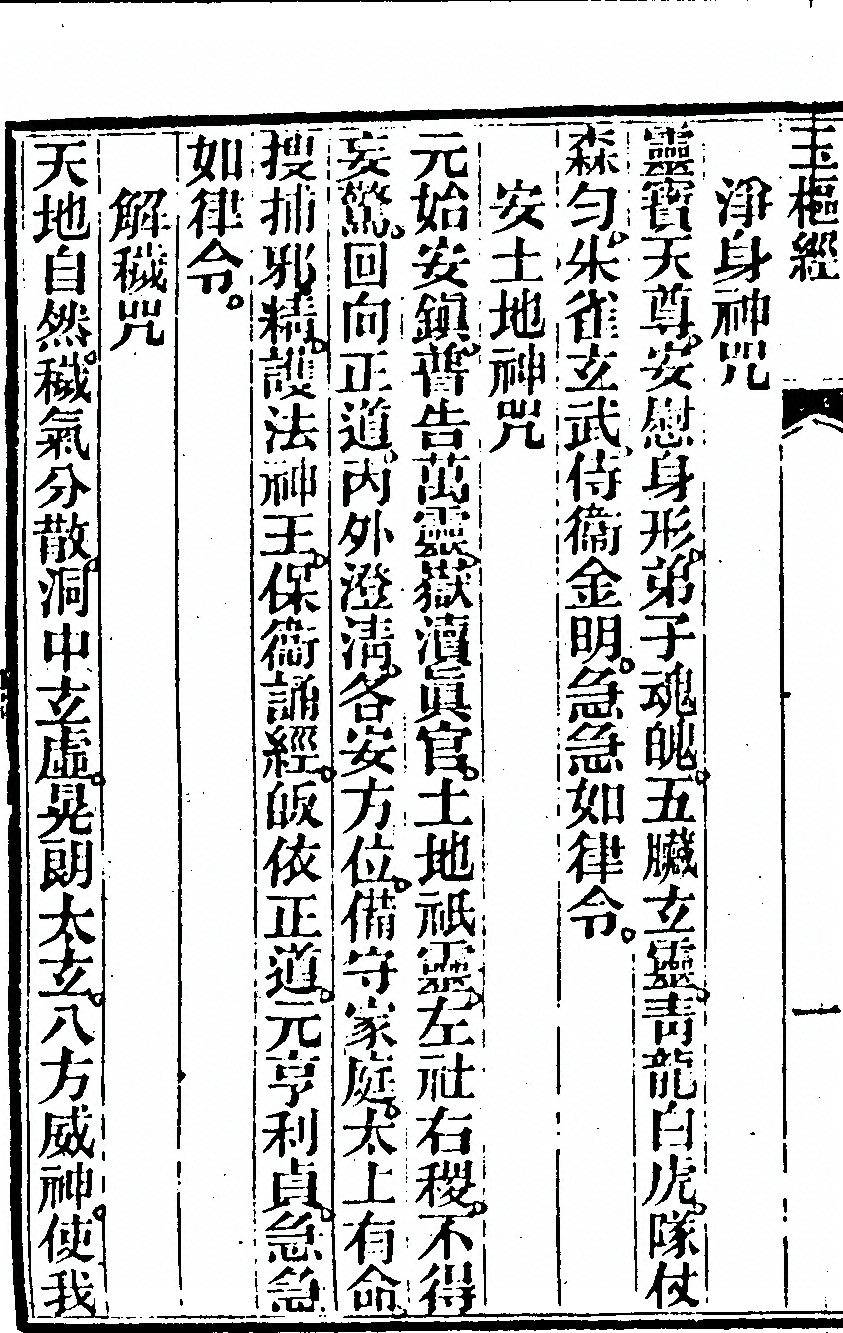 玉樞經
一
淨身神咒
靈寶天尊。安慰身形。弟子魂魄。五臟玄靈。青龍白虎。隊仗
森匀。朱雀玄武。侍衞金明。急急如律令。
安土地神咒
元始安鎭。普告萬靈。嶽瀆眞官。土地祇靈。左社右稷。不得
妄驚。回向正道。內外澄淸。各安方位。備守家庭。太上有命。
搜捕邪精。護法神王。保衞誦經。皈依正道。元亨利貞。急急
如律令。
解穢咒
天地自然。穢氣分散。洞中玄虛。晃朗太玄。八方威神。使我